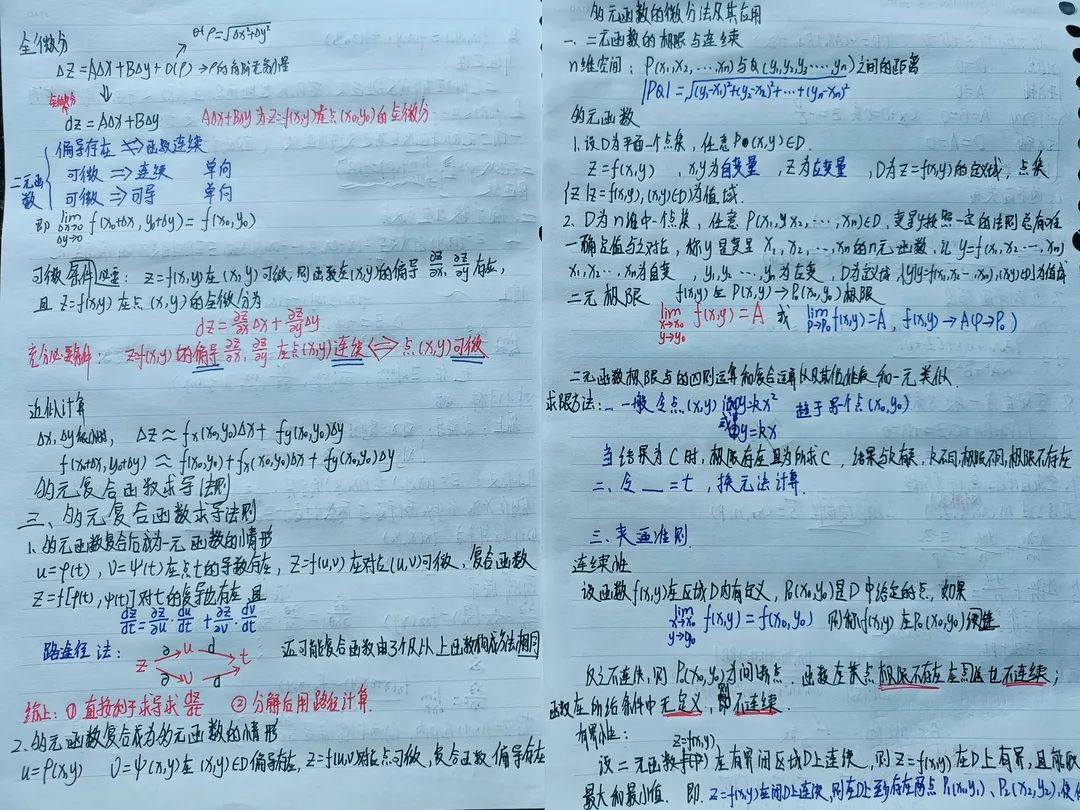 全微分
ρ=√Δx²+Δy²
Δz=AΔx+BΔy+o(ρ) → ρ的高阶无穷小量
全微分
dz=AΔx+BΔy
AΔx+BΔy为z=f(x,y)在点(x₀,y₀)的全微分
二元函数
偏导存在 函数连续
可微 ⇒ 连续 单向
可微 ⇒ 可导 单向
即 lim f(x₀+Δx, y₀+Δy)=f(x₀,y₀)
Δx→0
Δy→0
可微条件 必要: z=f(x,y)在(x,y)可微,则函数在(x,y)的偏导 ∂z/∂x, ∂z/∂y 存在,
且 z=f(x,y) 在点(x,y)的全微分为
dz=∂z/∂x Δx+∂z/∂y Δy
充分必要条件: z=f(x,y)的偏导 ∂z/∂x, ∂z/∂y 在点(x,y)连续 ⇔ 点(x,y)可微
近似计算
Δx,Δy很小时, Δz≈fx(x₀,y₀)Δx+fy(x₀,y₀)Δy
f(x₀+Δx,y₀+Δy)≈f(x₀,y₀)+fx(x₀,y₀)Δx+fy(x₀,y₀)Δy
多元复合函数求导法则
三、多元复合函数求导法则
1、多元函数复合后成为一元函数的情形
u=φ(t), v=ψ(t)在点t的导数存在, z=f(u,v)在对应(u,v)可微,复合函数
z=f[φ(t),ψ(t)]对t的导数存在且
dz/dt=∂z/∂u·du/dt+∂z/∂v·dv/dt
路径法:
∂ u d
z t
∂ v d
还可能复合函数由3个及以上函数构成方法相同
综上: ① 直接利于求导求 dz/dt ② 分解后用路径计算
2、多元函数复合成为多元函数的情形
u=φ(x,y) v=ψ(x,y)在(x,y)∈D偏导存在, z=f(u,v)对应点可微,复合函数偏导存在
多元函数的微分法及其应用
一、二元函数的极限与连续
n维空间: P(x₁,x₂,…xn)与Q(y₁,y₂,y₃…,yn)之间的距离
|PQ|=√(y₁-x₁)²+(y₂-x₂)²+…+(yn-xn)²
多元函数
1.设D为平面一个点集, 任意P(x,y)∈D.
z=f(x,y) , x,y为自变量 , z为因变量 , D为z=f(x,y)的定义域, 点集
{z|z=f(x,y),(x,y)∈D}为值域.
2. D为n维中一个点集, 任意 P(x₁,x₂,…,xn)∈D, 变量y按照一定的法则总有唯
一确定值与之对应, 称y是变量 x₁,x₂,…,xn的n元函数,记 y=f(x₁,x₂…,xn)
x₁,x₂…,xn为自变, y₁,y₂…yn为因变, D为定义域,{y|y=f(x₁,x₂…xn),(x,y)∈D}为值域
二元极限 f(x,y)在P(x,y)→P₀(x₀,y₀)极限
lim f(x,y)=A 或 lim f(x,y)=A, f(x,y)→A(P→P₀)
x→x₀ P→P₀
y→y₀
二元函数极限与的四则运算和复合运算以及其值性质和一元类似
求限方法: 一、一般令点(x,y) y=kx² 趋于另个点(x₀,y₀)
或 y=kx
当结果为C时,极限存在且为所求C, 结果与k有关, k不同,极限不同,极限不存在
二、令__=t, 换元法计算.
三、夹逼准则.
连续性
设函数f(x,y)在区域D内有定义, P₀(x₀,y₀)是D中给定的点, 如果
lim f(x,y)=f(x₀,y₀) 则称f(x,y)在P₀(x₀,y₀)连续
x→x₀
y→y₀
反之不连续,则 P₀(x₀,y₀)为间断点. 函数在某点极限不存在 也不连续;
函数在所给条件中无定义,则不连续.
有界性:
z=f(x,y)
设二元函数 在有界闭区域D上连续, 则z=f(x,y)在D上有界,且能取
最大和最小值. 即 z=f(x,y)在闭D上连续,则在D上至少存在两点P₁(x₁,y₁)、P₂(x₂,y₂),使